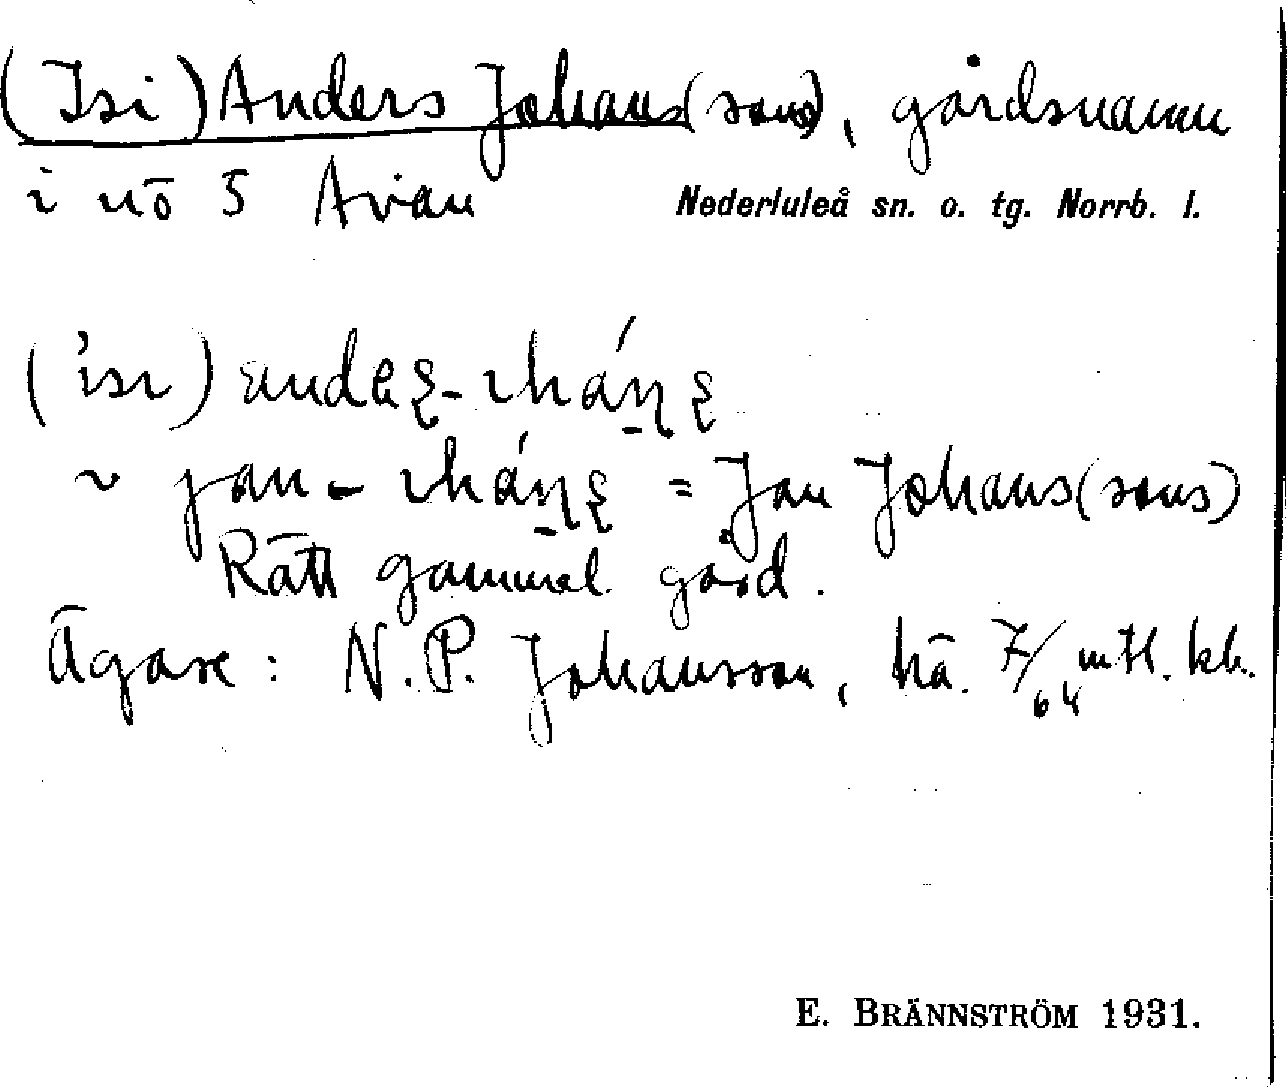 (Isi) Anders Johans(sons), gårdsnamn
i nö 5 Avan Nederluleå sn. o. tg. Norrb. l.
('ısı)
~ = Jan Johans(sons)
Rätt gammal gård.
Ägare: N. P. Johansson, hä. 7/64 mtl. kh.
E. BRÄNNSTRÖM 1931.